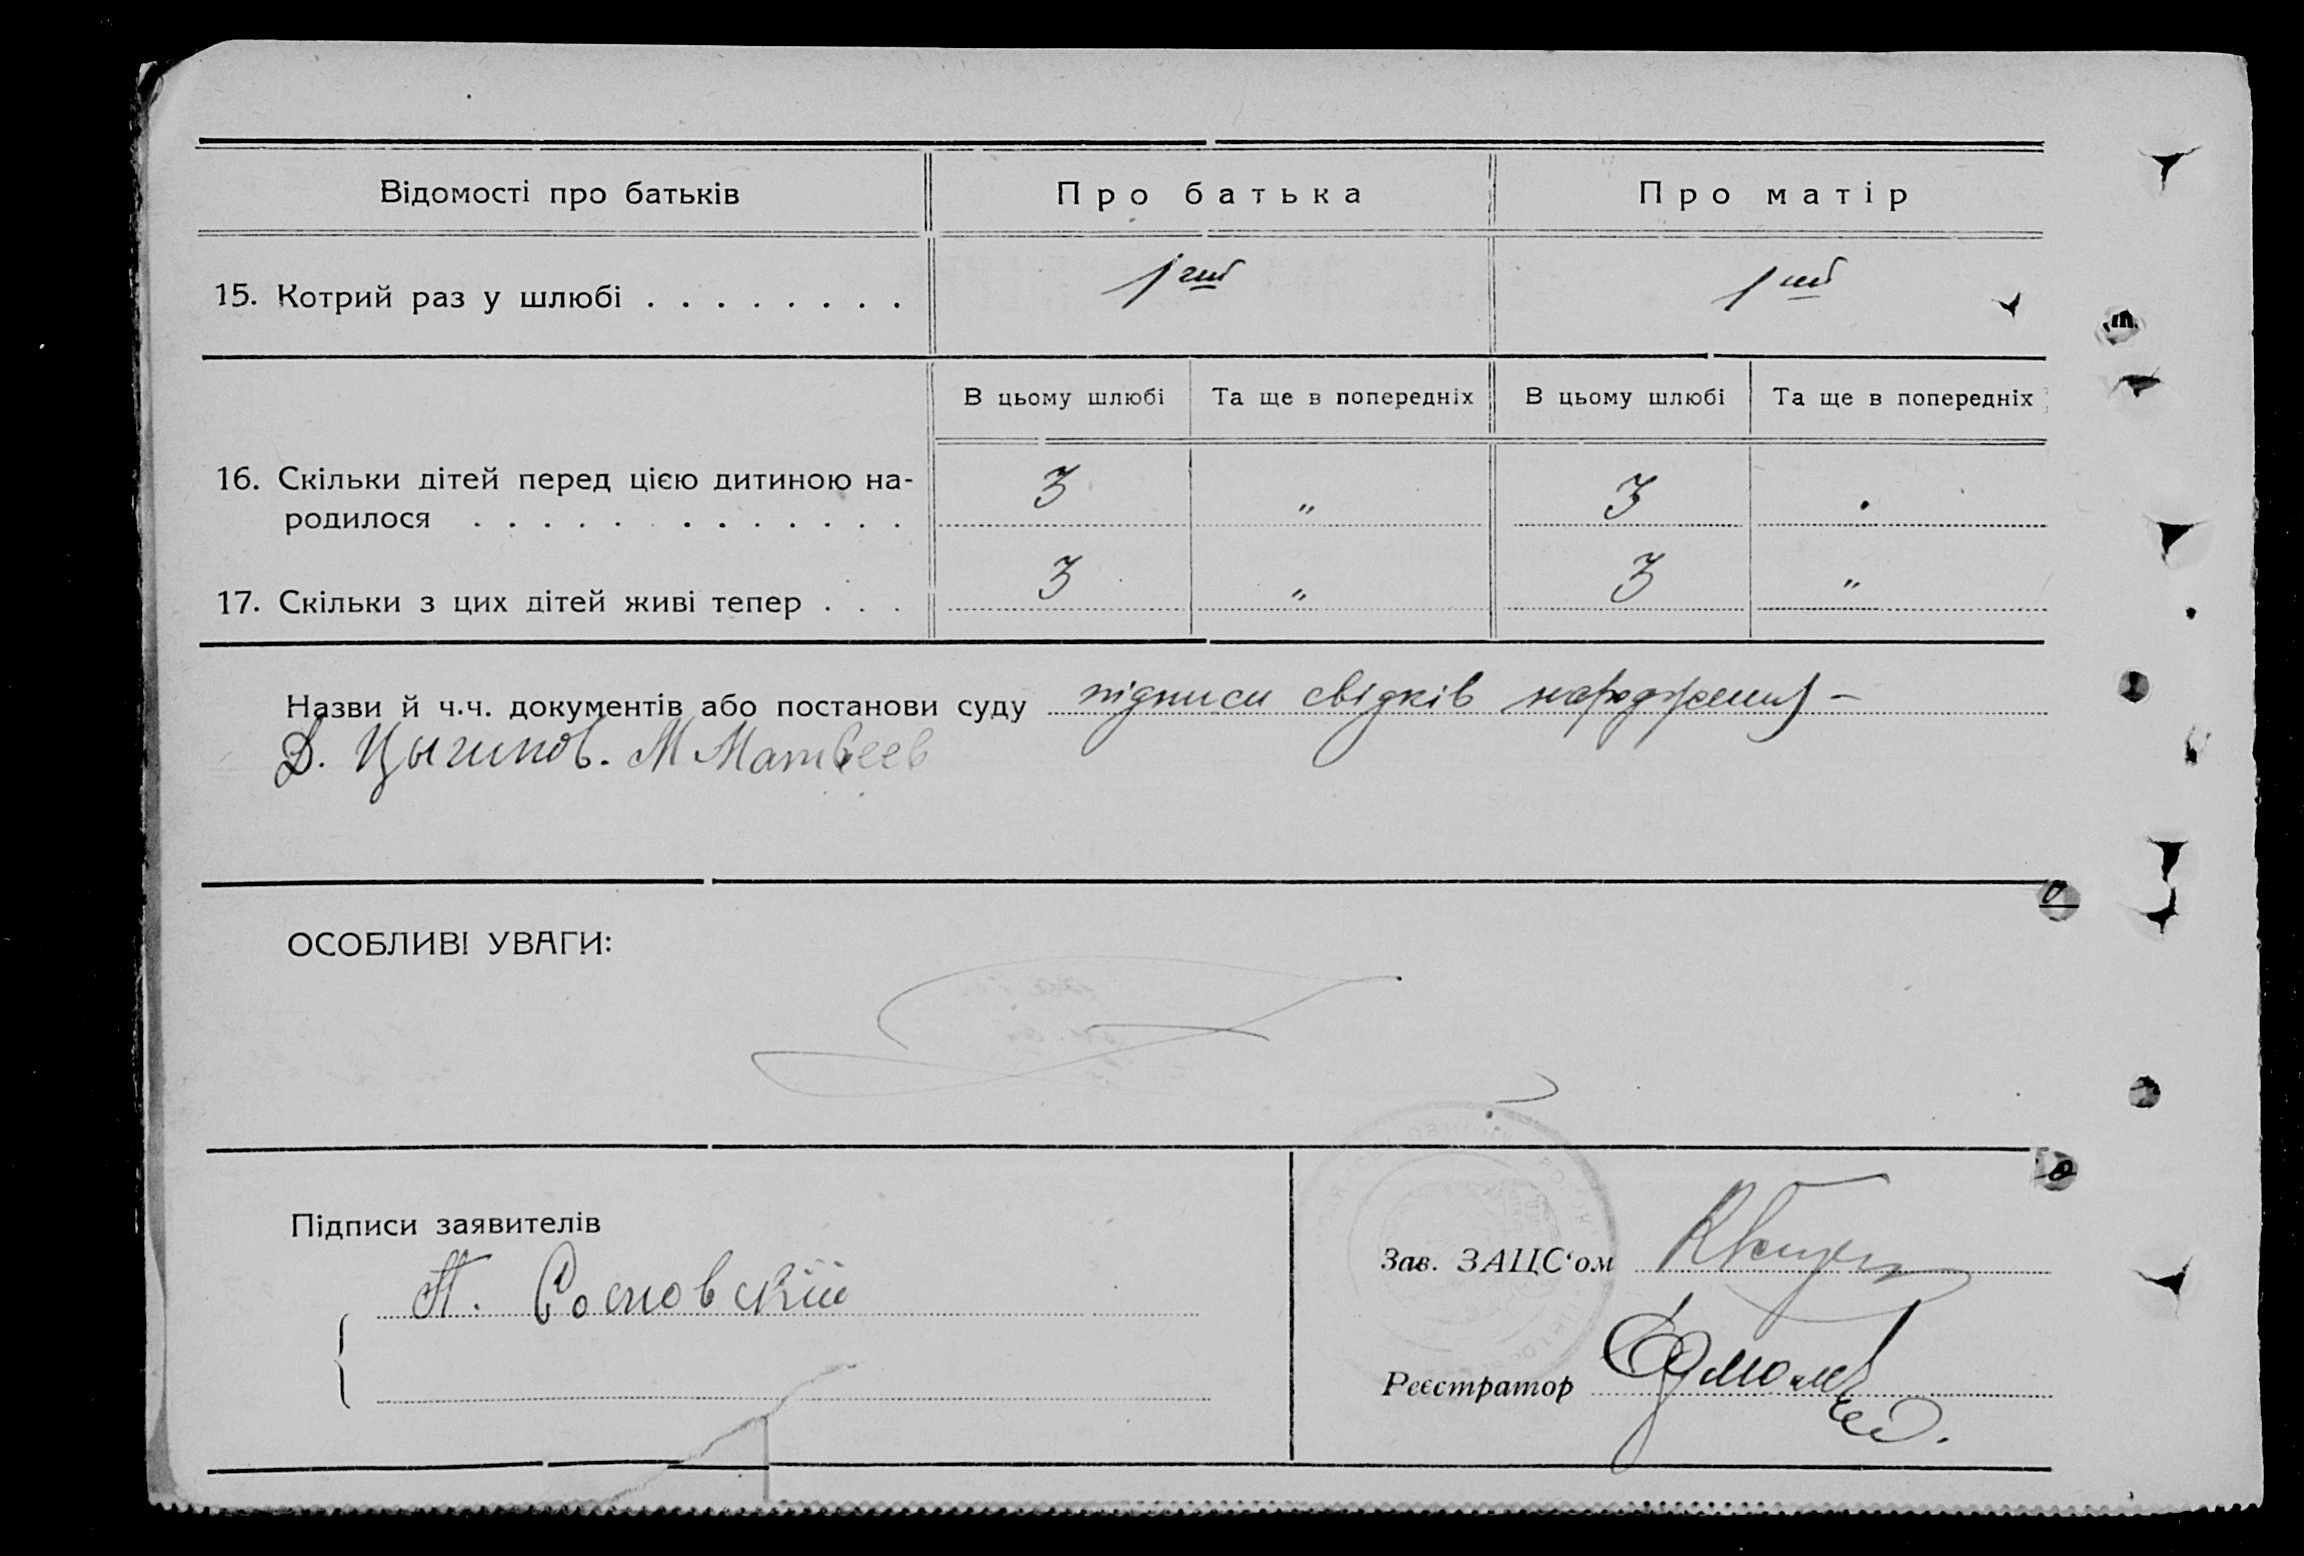 Відомості про батьків Про батька Про матір
15. Котрий раз у шлюбі . . . . . . . . 1ий 1ий
В цьому шлюбі Та ще в попередніх В цьому шлюбі Та ще в попередніх
16. Скільки дітей перед цією дитиною на- 3 „ 3 .
родилося . . . . . . . . . . . . .
17. Скільки з цих дітей живі тепер . . . 3 „ 3 „
Назви й ч.ч. документів або постанови суду підписи свідків народження –
Д. Цыганов. М Матвеев
ОСОБЛИВІ УВАГИ:
Підписи заявителів
П. Сосновский
Зав. ЗАЦС'ом
Реєстратор